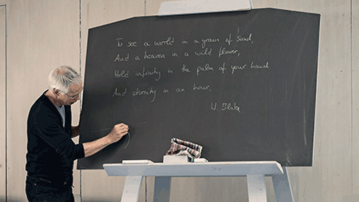 To see a world in a grain of sand,
And a heaven in a wild flower,
Hold infinity in the palm of your hand
And eternity in an hour.
W. Blake